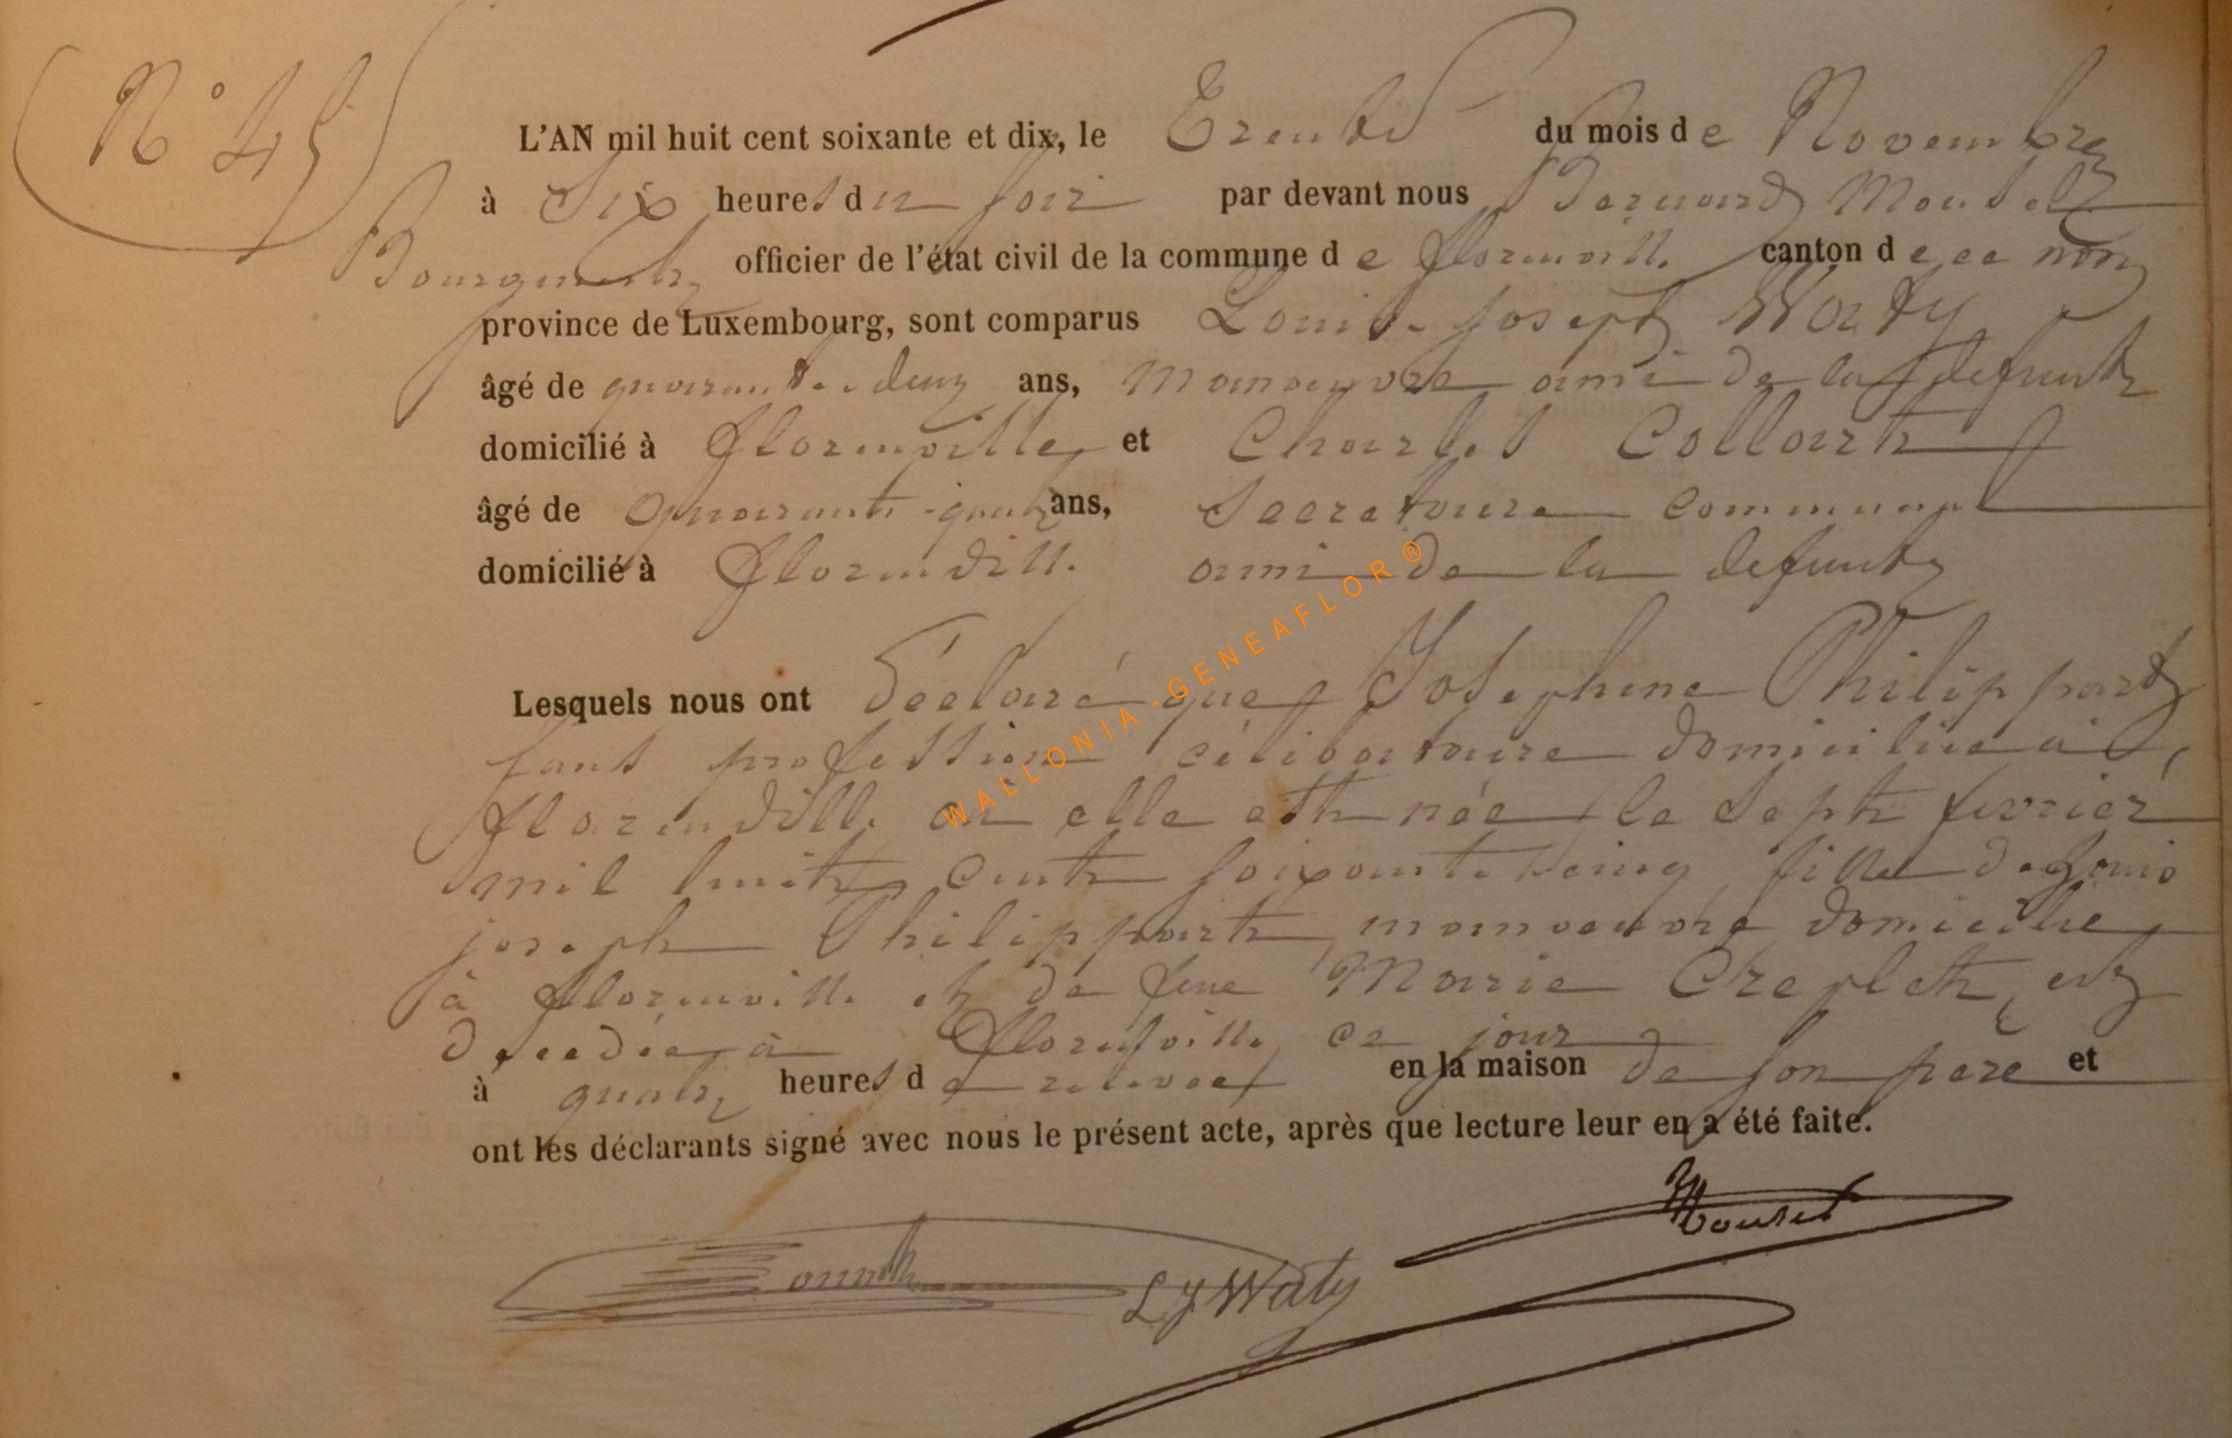 N° 45
L'AN mil huit cent soixante et dix, le Trente du mois de Novembre
à Six heures du soir par devant nous Bernard Mousel
Bourgmestre officier de l'état civil de la commune de florenville canton de ce nom
province de Luxembourg, sont comparus Louis Joseph Waty
âgé de quarante deux ans, manoeuvre ami de la defunte
domicilié à florenville et Charles Collart
âgé de quarante quatre ans, Secretaire communal
domicilié à florenville ami de la defunte
Lesquels nous ont déclaré que Josephine Philippart
sans profession célibataire domiciliée à
florenville où elle est née le Sept fevrier
mil huit cent soixante cinq, fille de Louis
joseph Philippart, manoeuvre domicilié
à florenville et de feue Marie Creplet, est
decedée à florenville ce jour
à quatre heures de relevée en la maison de son pere et
ont les déclarants signé avec nous le présent acte, après que lecture leur en a été faite.
Mousel
LJ Waty
WALLONIA-GENEAFLOR®